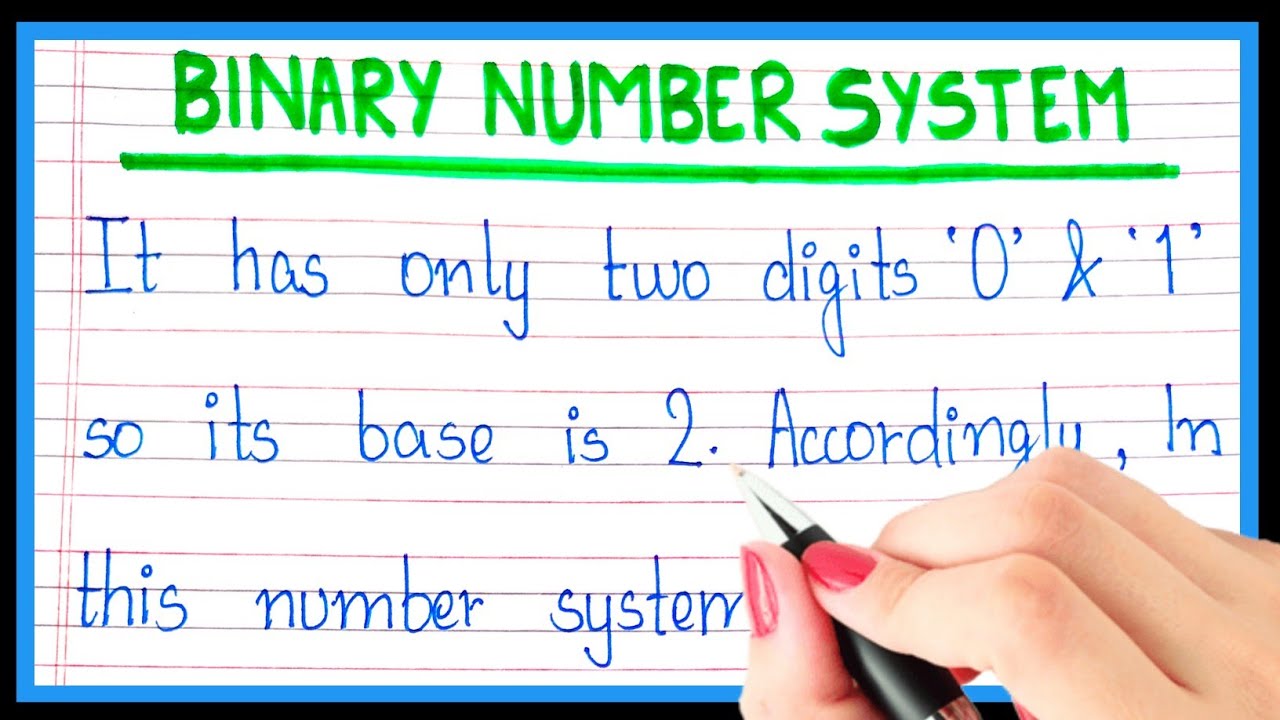 BINARY NUMBER SYSTEM
It has only two digits ‘0’ & ‘1’
so its base is 2. Accordingly, In
this number system